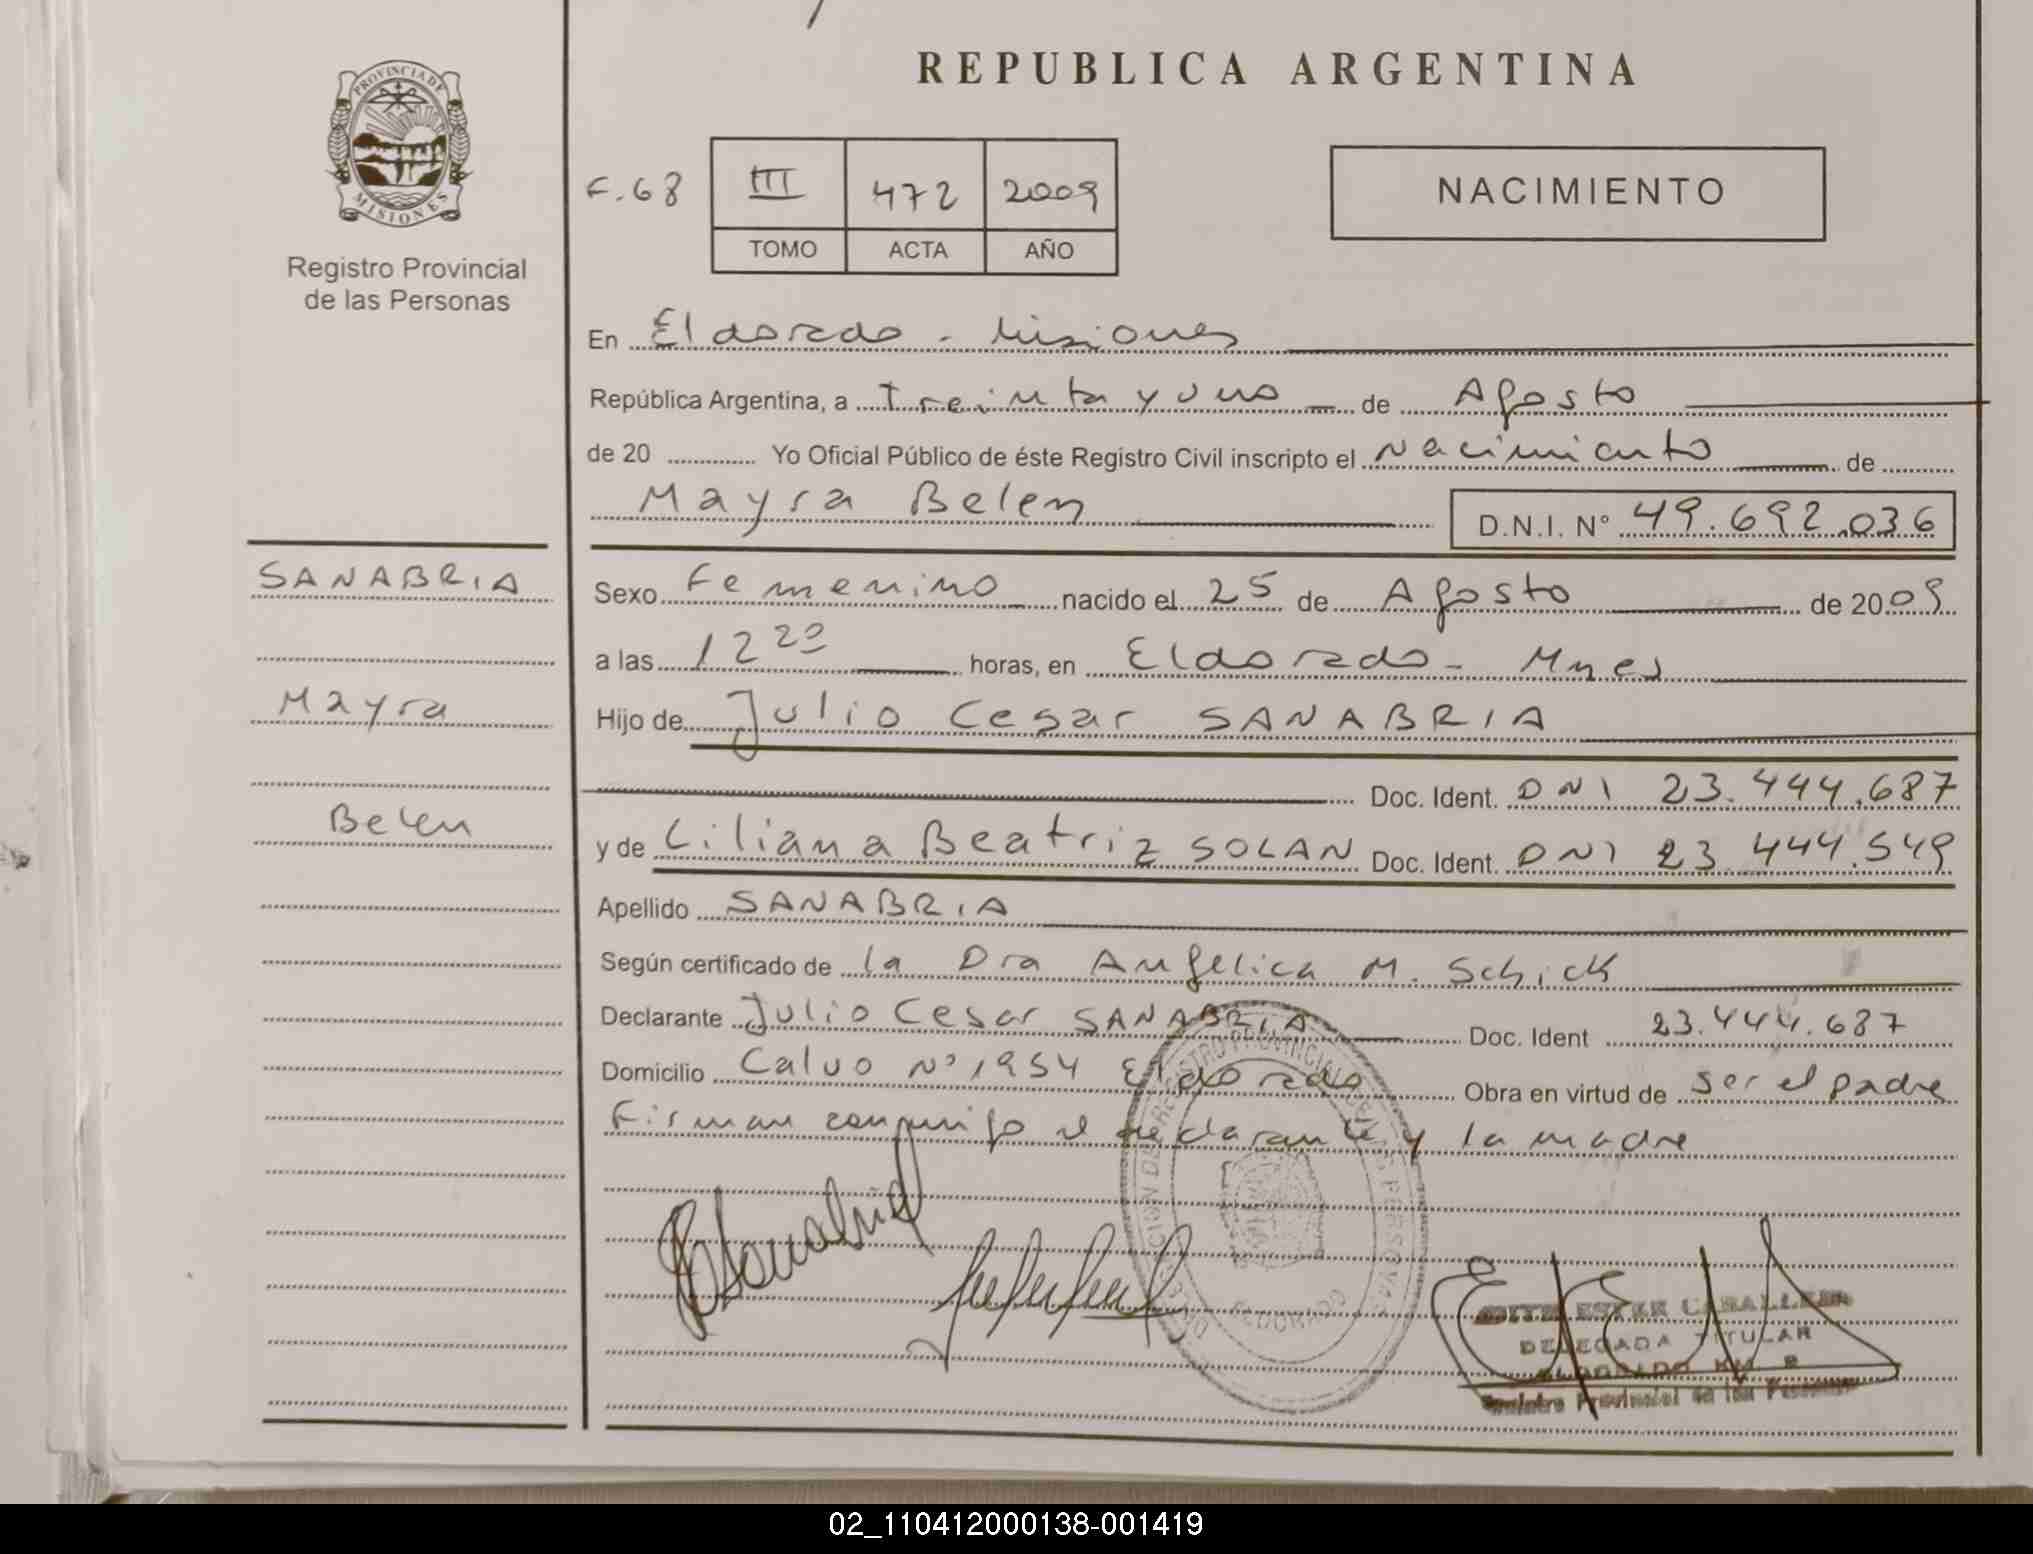 REPUBLICA ARGENTINA
PROVINCIA DE MISIONES
Registro Provincial
de las Personas
F. 68
III 472 2009
TOMO ACTA AÑO
NACIMIENTO
En Eldorado - Misiones
República Argentina, a Treinta y uno de Agosto
de 20 Yo Oficial Público de éste Registro Civil inscripto el Nacimiento de
Mayra Belen D.N.I. Nº 49.692.036
SANABRIA
Mayra
Belen
Sexo Femenino nacido el 25 de Agosto de 2009
a las 12 20 horas, en Eldorado - Mnes
Hijo de Julio Cesar SANABRIA
Doc. Ident. DNI 23.444.687
y de Liliana Beatriz SOLAN Doc. Ident. DNI 23.444.549
Apellido SANABRIA
Según certificado de la Dra Angelica M. Schick
Declarante Julio Cesar SANABRIA Doc. Ident 23.444.687
Domicilio Calvo Nº 1954 Eldorado Obra en virtud de ser el padre
Firman conmigo el declarante y la madre
REGISTRO PROVINCIAL DE LAS PERSONAS
ELDORADO
ESTER CABALLERO
DELEGADA TITULAR
ELDORADO KM
Registro Provincial de las Personas
02_110412000138-001419